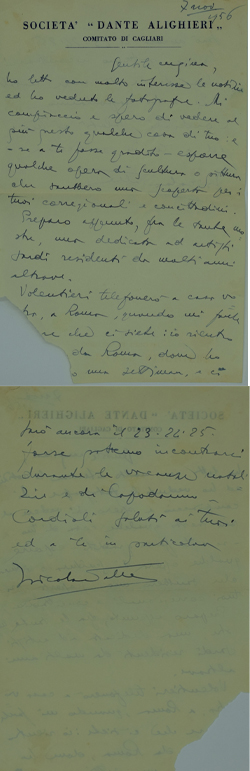 7 nov
1956
SOCIETA' "DANTE ALIGHIERI"
COMITATO DI CAGLIARI
Gentile cugina,
ho letto con molto interesse le notizie
ed ho veduto le fotografie. Mi
compiaccio e spero di vedere al
più presto qualche cosa di tuo: e
– se a te fosse gradito – esporre
qualche opera di scultura o pittura
che sarebbero una scoperta per i
tuoi corregionali e concittadini.
Preparo appunto, fra le tante mo
stre, una dedicata ad artisti
sardi residenti da molti anni
altrove.
Volentieri telefonerò a casa vo
stra, a Roma, quando mi
che ci siete: io rientro
da Roma, dove ho
una settimana, e ci
sarò ancora il 23. 24. 25.
Forse potremo incontrarci
durante le vacanze natali
zie e di Capodanno –
Cordiali saluti ai tuoi
ed a te in particolare
Nicola